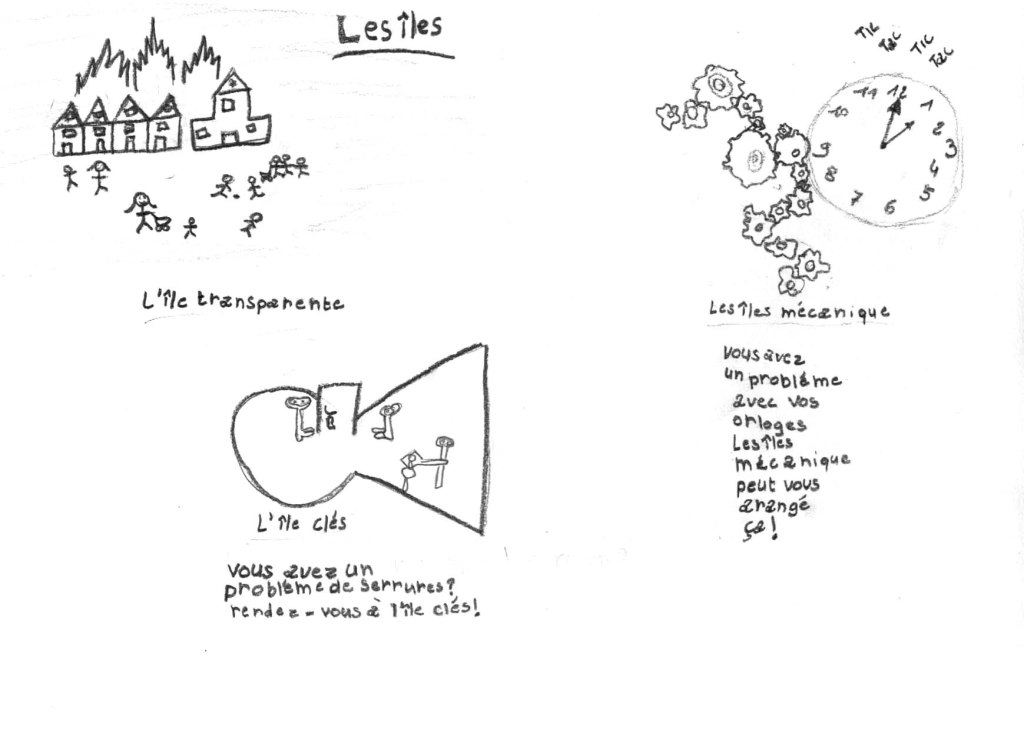 Les îles
TIC
TAC
TIC
TAC
11 12 1
10 2
9 3
8 4
7 6 5
L'île transparente
Les îles mécanique
vous avez
un problème
avec vos
orloges
Les îles
mécanique
peut vous
arangé
ça!
L'île clés
vous avez un
problème de serrures?
rendez-vous à l'île clés!